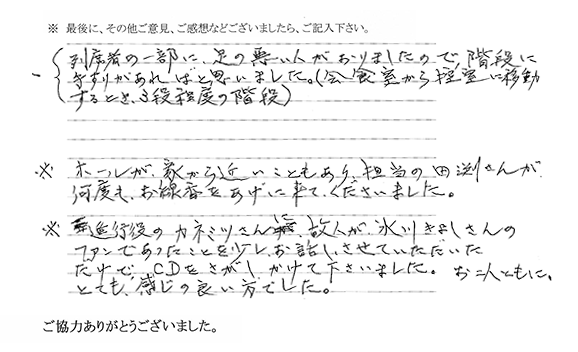 ※ 最後に、その他ご意見、ご感想などございましたら、ご記入下さい。
列席者の一部に、足の悪い人がおりましたので、階段に
手すりがあればと思いました。(会食室から控室に移動
するとき、3段程度の階段)
※ ホールが、家から近いこともあり、担当の田渕さんが
何度も、お線香をあげに来て、くださいました。
※ 進行役のカネミツさんに、故人が、氷川きよしさんの
ファンであったことを少しお話しさせていただいた
だけで、CDをさがしかけて下さいました。 お二人ともに、
とても、感じの良い方でした。
ご協力ありがとうございました。